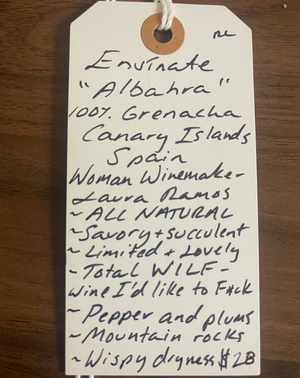 RL
Envinate
"Albahra"
100%. Grenacha
Canary Islands
Spain
Woman Winemaker-
Laura Ramos
~ ALL NATURAL
~Savory+succulent
~Limited + Lovely
~Total WILF-
Wine I'd like to F*ck
~Pepper and plums
~Mountain rocks
~Wispy dryness $28